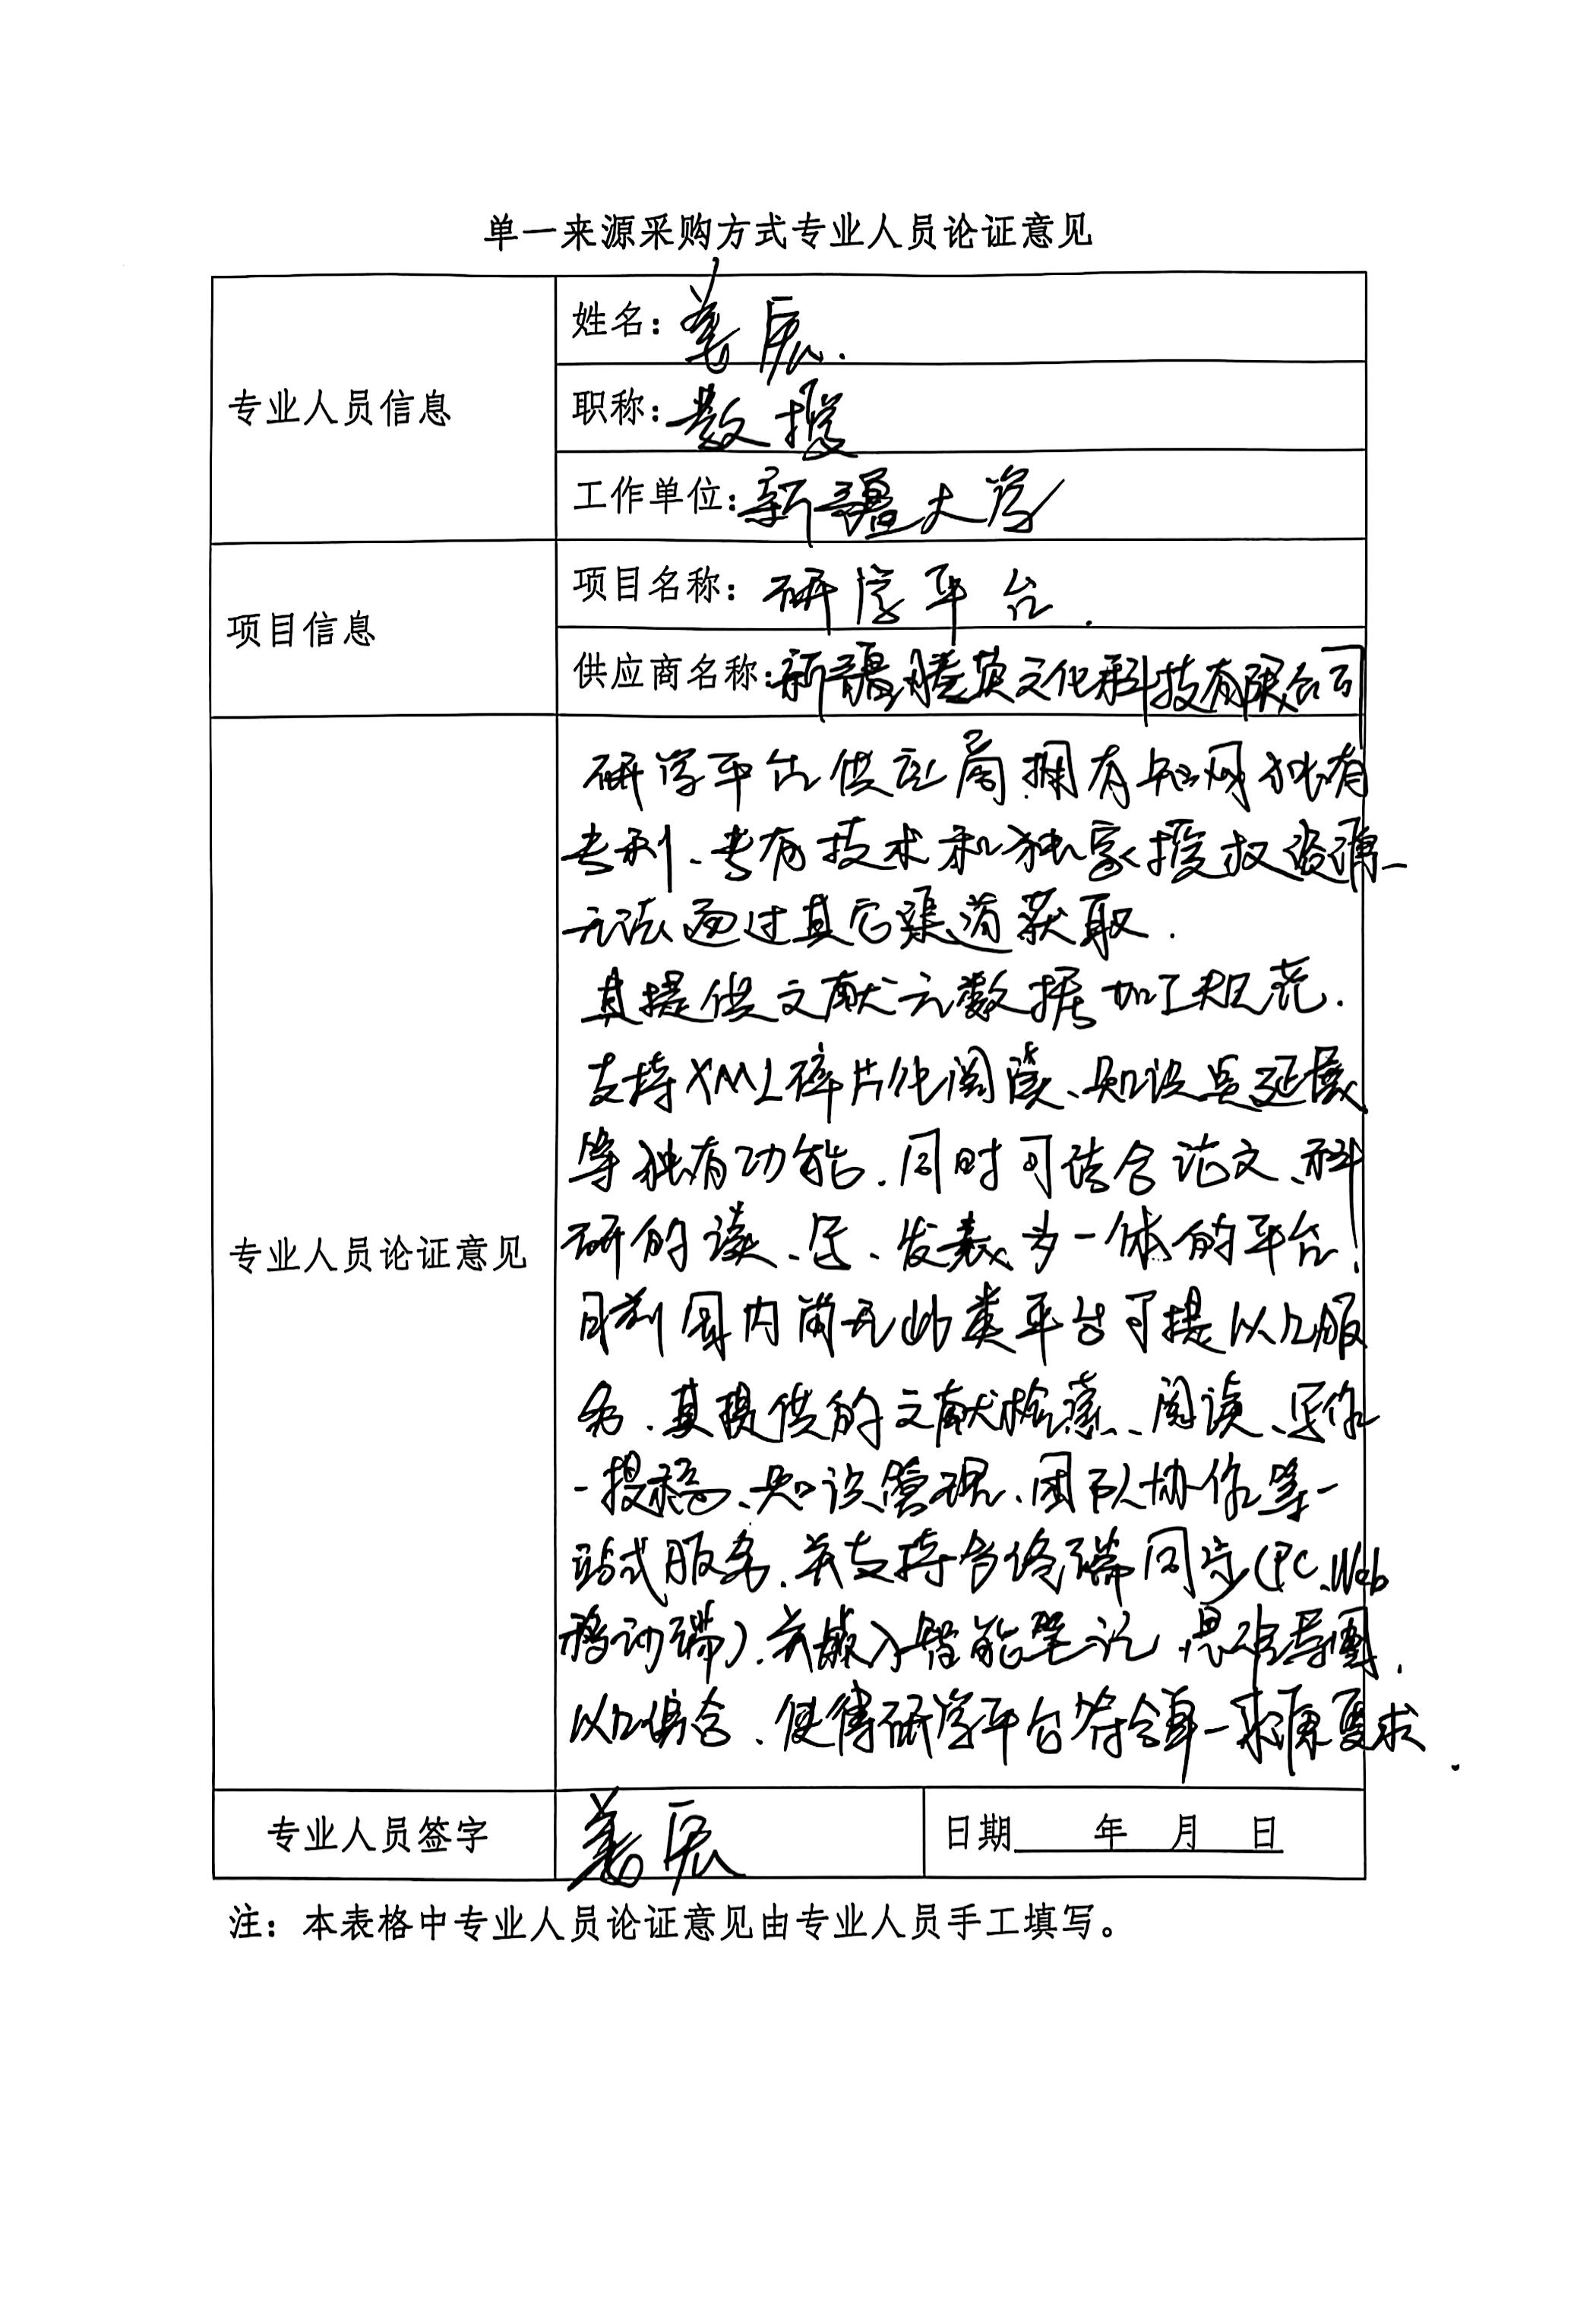 单一来源采购方式专业人员论证意见
专业人员信息
姓名：姜宏.
职称：教授
工作单位：新疆大学
项目信息
项目名称：研学平台.
供应商名称：新疆腾英文化科技有限公司
专业人员论证意见
研学平台供应商拥有知网独有
专利、专有技术和独家授权资源、
无法通过其它渠道获取.
其提供文献元数据加工规范.
支持XML碎片化阅读、知识点延展
等独有功能.同时可结合论文、科
研的读、写、发表为一体的平台.
目前国内尚无此类平台可提以上服
务.其提供的文献检索、阅读、写作
-投稿、知识管理、团队协作等一
站式服务.并支持多终端同步(PC、Web
移动端).并嵌入智能笔记、思维导图.
以上综合、使得研学平台符合单一来源要求.
专业人员签字
姜宏
日期 年 月 日
注：本表格中专业人员论证意见由专业人员手工填写。